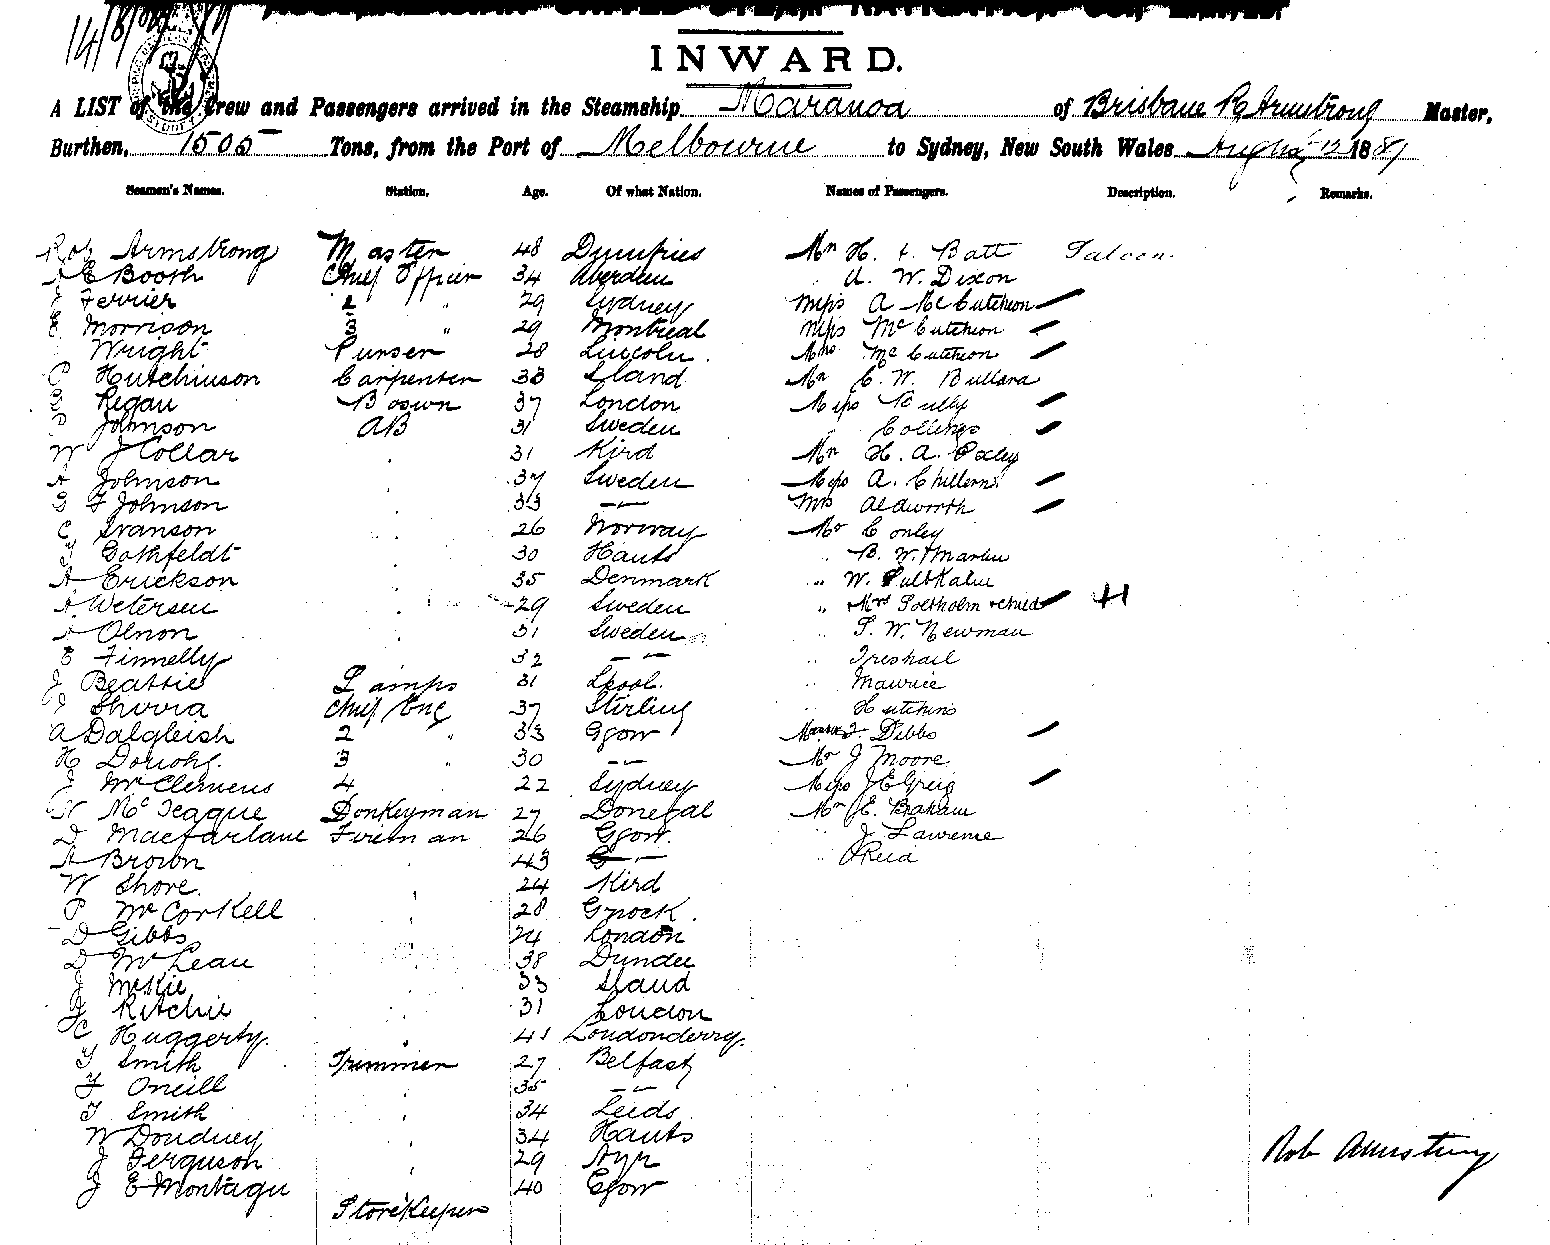 14/8/89
INWARD.
A LIST of the Crew and Passengers arrived in the Steamship Maranoa of Brisbane R Armstrong Master,
Burthen, 1505 Tons, from the Port of Melbourne to Sydney, New South Wales 12 1889
Seamen's Names. Station. Age. Of what Nation. Names of Passengers. Description. Remarks.
Rob Armstrong Master 48 Dumfries Mr H. Batt Saloon
A E Booth Chief Officer 34 Aberdeen " A. W. Dixon
J Ferrier 2 " 29 Sydney Miss A McCutcheon
E Morrison 3 " 29 Montreal Miss McCutcheon
Wright Purser 28 Lincoln. Mrs McCutcheon
P Hutchinson Carpenter 33 Sland Mr C. W. Bullara
Regan Boswn 37 London Miss Bully
P Johnson AB 31 Sweden Collings
W J Collar 31 Kird Mr H. A. Oxley
A Johnson 37 Sweden Miss A.
G F Johnson 33 -"- Mrs Aldworth
C Ivanson 26 Norway Mr Conley
Gothfeldt 30 Hants " B. W. Martin
A Erickson 35 Denmark " W.
A Wetersen 29 Sweden " Mrs Soltholm & child H
A Olnon 31 Sweden " S. W. Newman
E Finnelly 32 -"- "
J Beattie Lamps 31 Lpool. " Maurice
Chief Eng 37 Stirling " Hutchins
A Dalgleish 2 " 33 Ggow Dibbs
H 3 " 30 -"- Mr J Moore
J McClemens 4 22 Sydney Miss J E Greig
N McTeague Donkeyman 27 Donegal Mr E. Braham
D Macfarlane Fireman 26 Ggow. " J Lawrence
A Brown 43 -"- " Reid
W Shore. 24 Kird
P McCorkell 28 Gnock.
D Gibbs 24 London
D McLean 38 Dundee
J McKie 33 Sland
J Ritchie 31 London
C Huggerty. 41 Londonderry.
T Smith Trimmer 27 Belfast
F Oneill 35 -"-
T Smith 34 Leeds
W Doudney 34 Hants
J Ferguson 29 Ayr
J E Montagu 40 Ggow
Rob Armstrong
Storekeeper